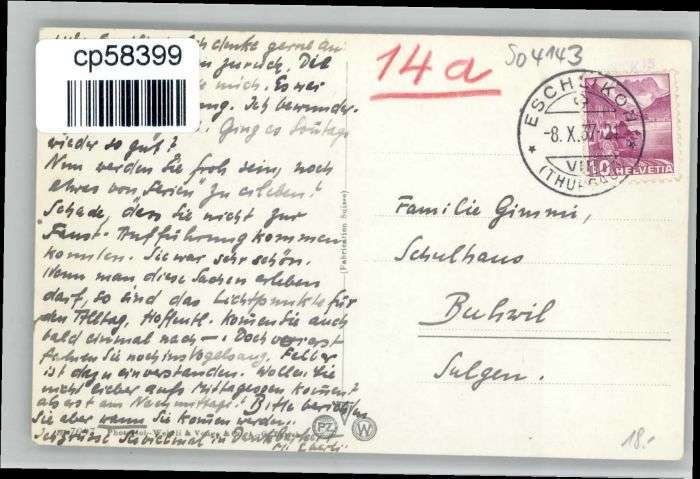 cp58399
denke gerne an
zurück. Die
mich. Es war
Ich bewunder-
Ging es Sonntags
wieder so gut?
Nun werden Sie froh sein, noch
etwas von Ferien zu erleben!
Schade, dass Sie nicht zur
Faust-Aufführung kommen
konnten. Sie war sehr schön.
Wenn man diese Sachen erleben
darf, so sind das Lichtpunkte für
den Alltag. Hoffentl. kommen Sie auch
bald einmal nach Doch vorerst
fahren Sie noch ins Vogelsang.
ist dazu einverstanden. Wollen Sie
nicht lieber aufs Mittagessen kommen?
als erst am Nachmittag? Bitte berichten
Sie aber wann Sie kommen werden.
in Dankbarkeit
(Fabrication Suisse)
PZ
W
14a
So4143
ESCHLIKON
-8.X.37
(THURGAU)
10 HELVETIA
Familie Gimmi,
Schulhaus
Buhwil
Sulgen.
18.-